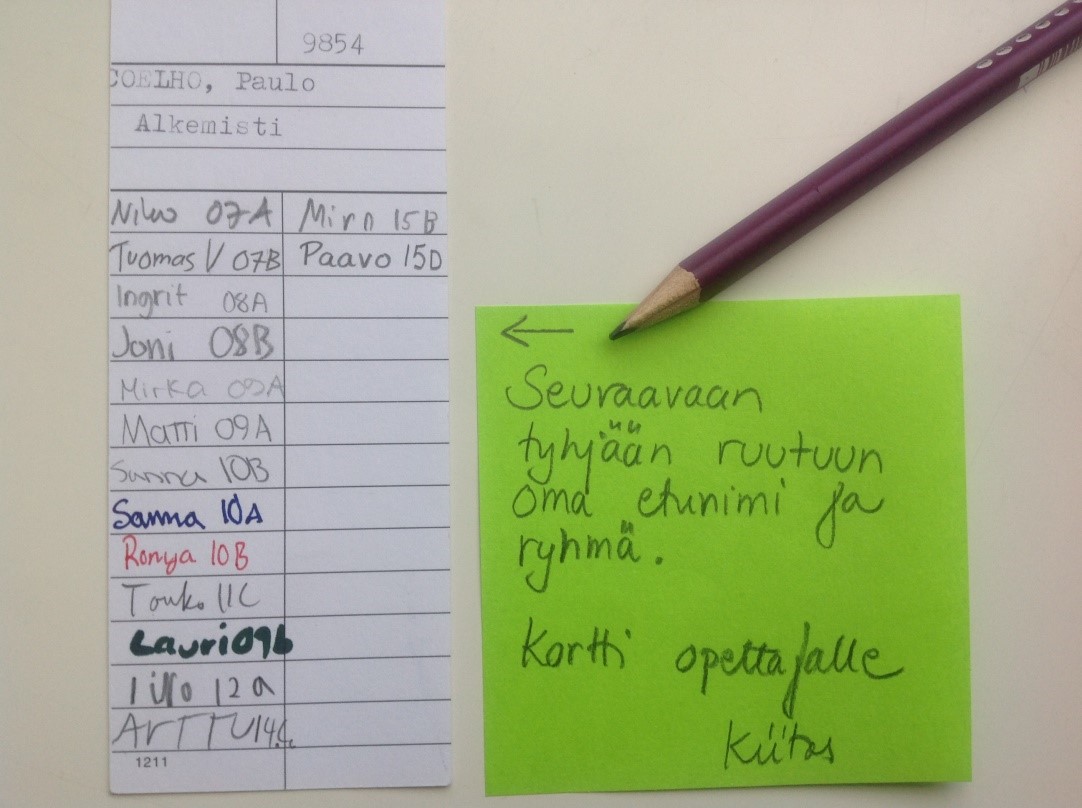 9854
COELHO, Paulo
Alkemisti
Niko 07A
Tuomas V 07B
Ingrit 08A
Joni 08B
Mirka 09A
Matti 09A
Sanna 10B
Sanna 10A
Ronya 10B
Touko 11C
Lauri09b
12a
ARTTU14C
1211
Miro 15B
Paavo 15D
←
Seuraavaan
tyhjään ruutuun
oma etunimi ja
ryhmä.
Kortti opettajalle
Kiitos